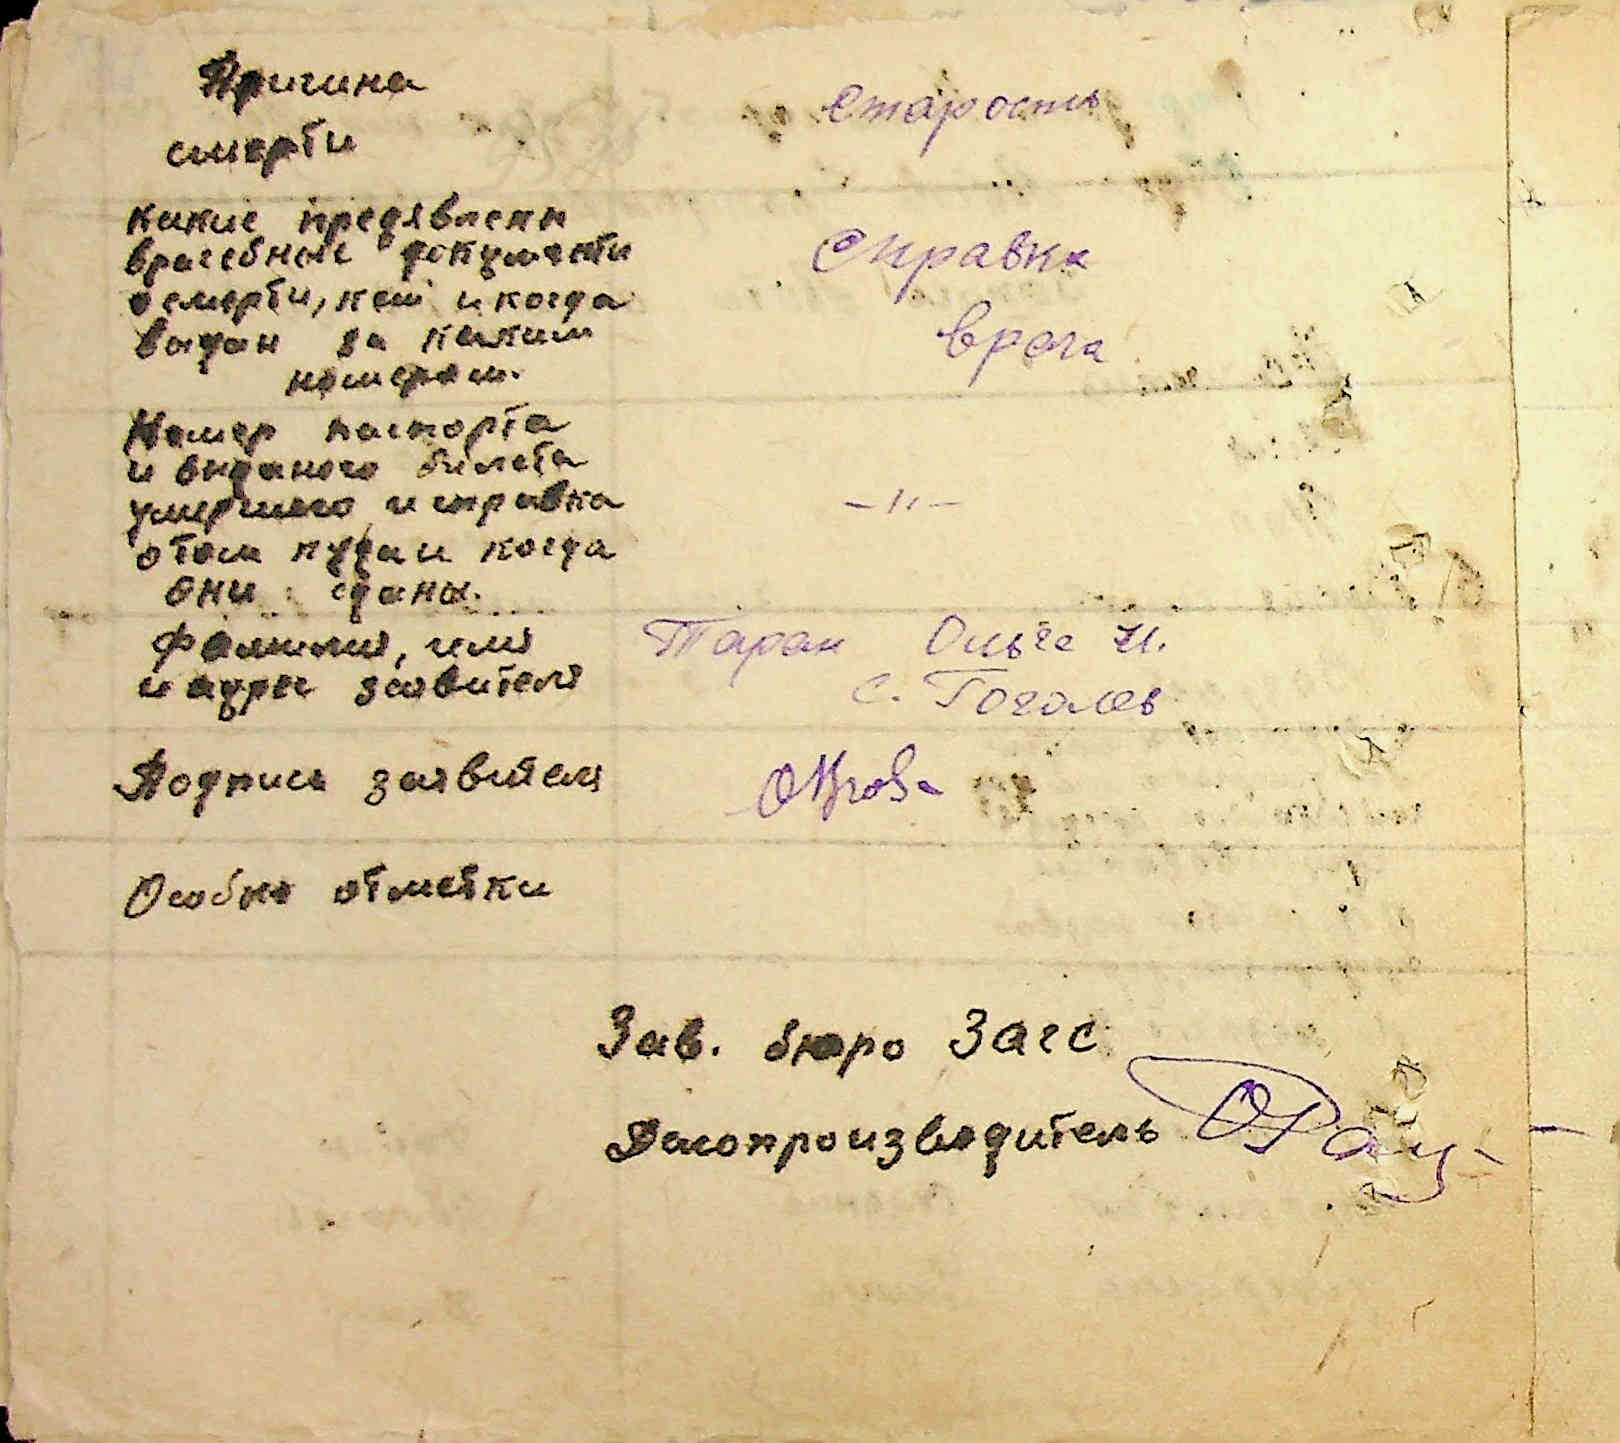 Причина
смерти
Старость
какие предявлени
врачебные документи
о смерти, кем и когда
видан за каким
номером.
Справка
врача
Номер паспорта
и виданого билета
умершего и справка
о том куда и когда
они сданы.
-"-
Фамилия, имя
и адрес заявителя
Таран Ольга И.
с. Гоголев
Подпись заявителя
Особие отметки
Зав. бюро Загс
Делопроизводитель